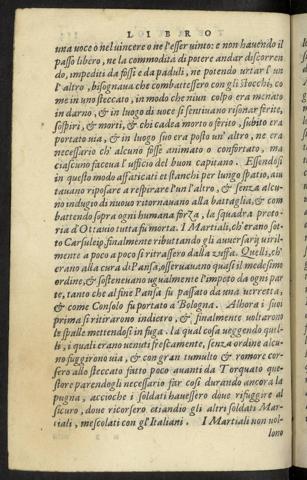 LIBRO
una uoce o nel uincere o ne l'esser uinto: e non hauendo il
passo libero, ne la commodita di potere andar discorren
do, impediti da fossi e da paduli, ne potendo urtar l'un
l'altro, bisognaua che combattessero con gli stocchi, co
me in uno steccato, in modo che niun colpo era menato
in darno, & in luogo di uoce si sentiuano risonar ferite,
sospiri, & morti, & chi cadea morto o ferito, subito era
portato uia, & in luogo suo era posto un'altro, ne era
necessario ch'alcuno fosse animato o confortato, ma
ciascuno faceua l'ufficio del buon capitano. Essendosi
in questo modo affaticati et stanchi per lungo spatio, aiu
tauano riposare a respirare l'un l'altro, & senza alcu
no indugio di nuouo ritornauano alla battaglia, & com
battendo sopra ogni humana forza, la squadra preto
ria d'Ottauio tutta fu morta. I Martiali, ch'erano sot=
to Carsuleio, finalmente ributtando gli auuersarij uiril
mente a poco a poco si ritrassero dalla zuffa. Quelli, ch'
erano alla cura di Pansa, osseruauano quasi il medesimo
ordine, & sosteneuano ugualmente l'impeto da ogni par
te, tanto che al fine Pansa fu passato da una uerretta,
& come Consolo fu portato a Bologna. Allhora i suoi
prima si ritirarono indietro, & finalmente uoltarono
le spalle mettendosi in fuga. la qual cosa ueggendo quel=
li, i quali erano uenuti frescamente, senza ordine alcu=
no fuggirono uia, & con gran tumulto & romore cor=
sero allo steccato fatto poco auanti da Torquato que=
store parendogli necessario far cosi durando ancora la
pugna, accioche i soldati hauessero doue rifuggire al
sicuro, doue ricorsero etiandio gli altri soldati Mar=
tiali, mescolati con gl'Italiani. I Martiali non uol=
lono